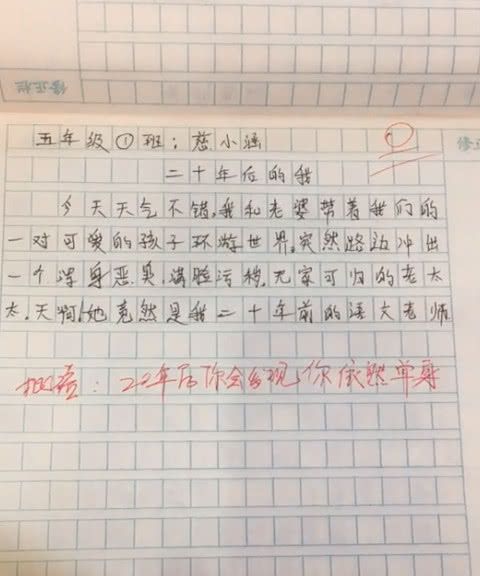 修正栏
五年级①班：慈小涵
0
二十年后的我
今天天气不错,我和老婆带着我们的
一对可爱的孩子环游世界,突然路边冲出
一个浑身恶臭,满脸污秽,无家可归的老太
太,天啊!她竟然是我二十年前的语文老师
批语：20年后你会发现你依然单身